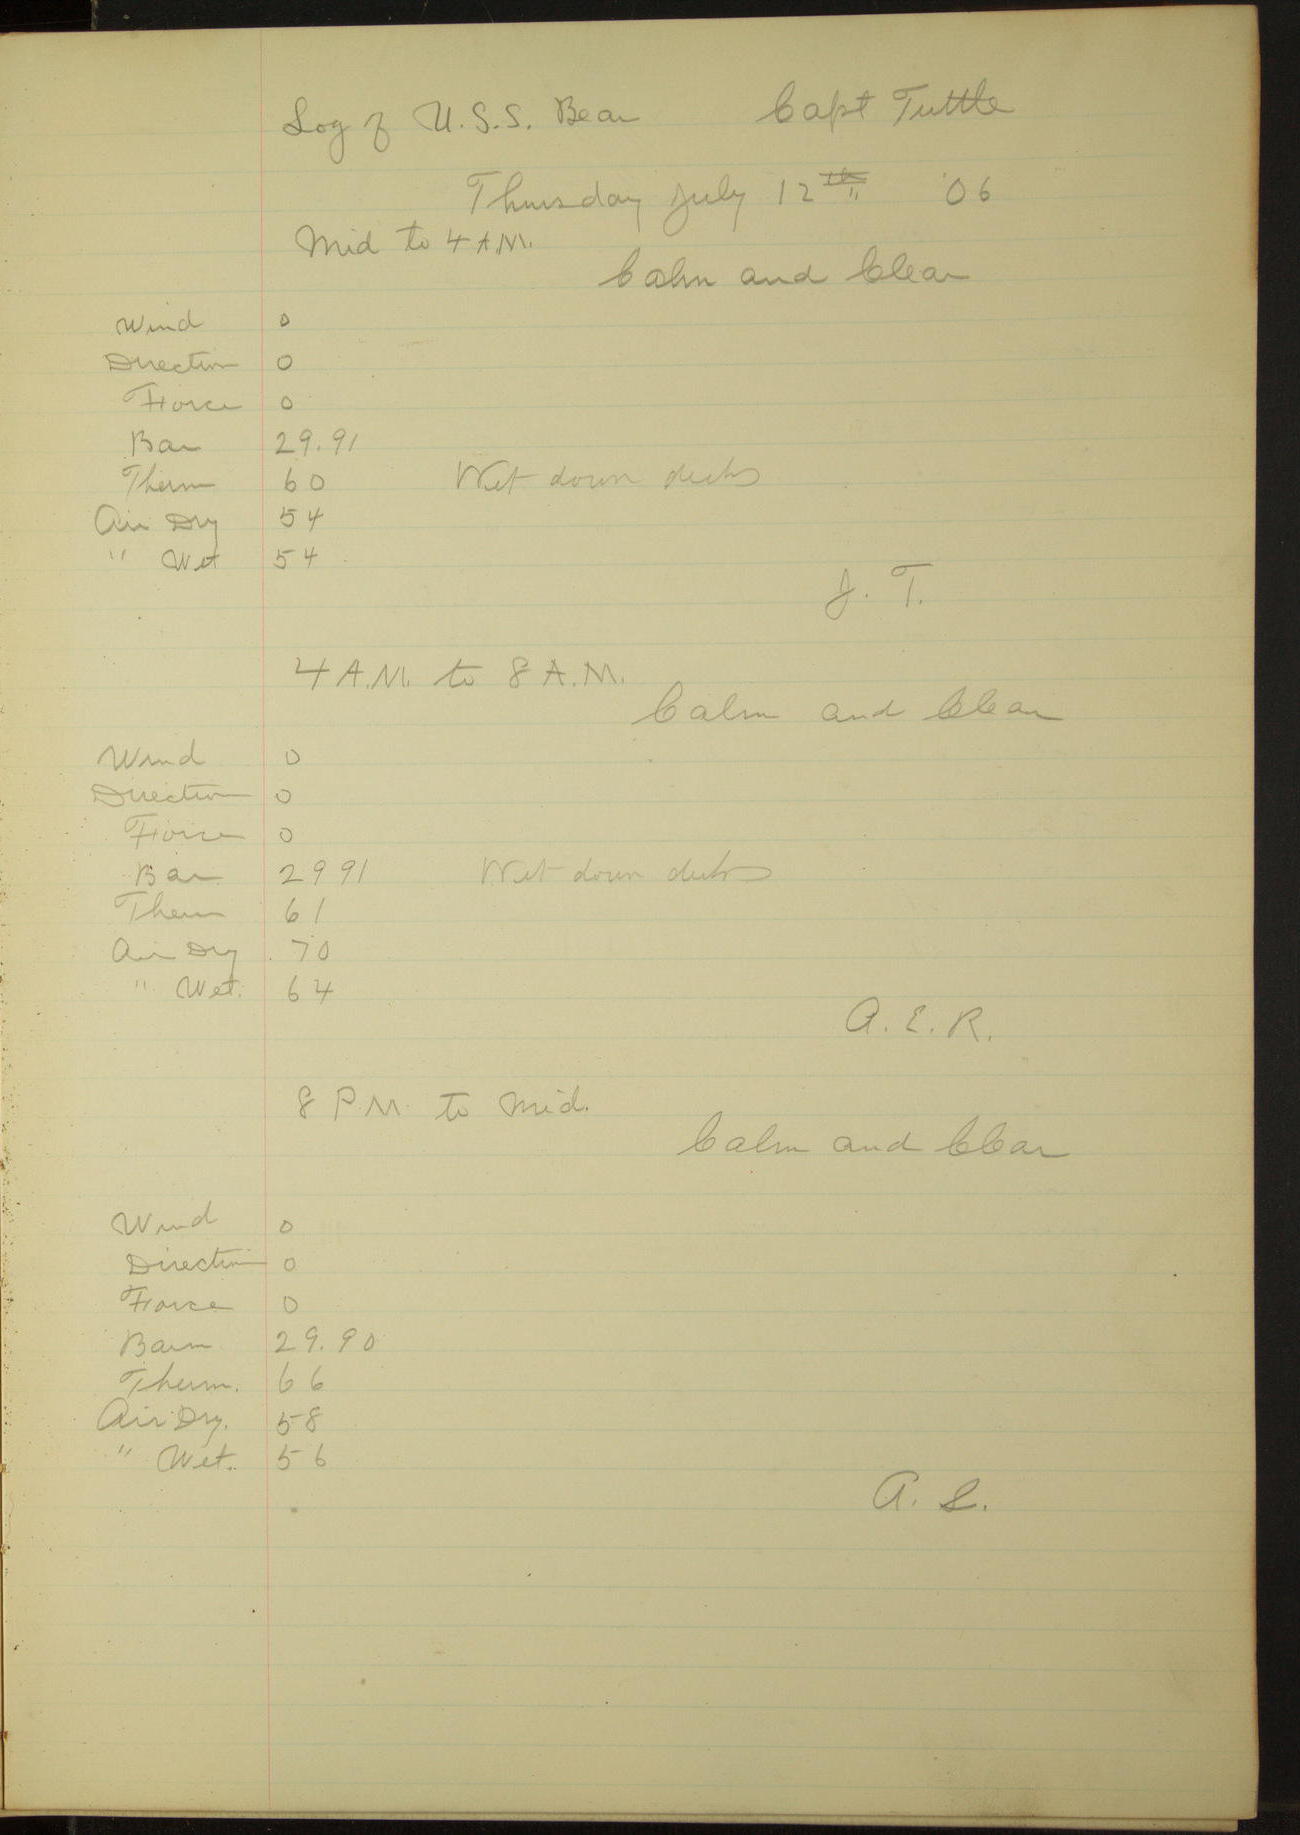 Log of U.S.S. Bear Capt Tuttle
Thursday July 12th '06
Mid to 4 A.M.
Calm and Clear
Wind 0
Direction 0
Force 0
Bar 29.91
Therm 60 Wet down decks
Air Dry 54
" Wet 54
J. T.
4 A.M. to 8 A.M.
Calm and Clear
Wind 0
Direction 0
Force 0
Bar 29 91 Wet down decks
Therm 61
Air Dry 70
" Wet. 64
A. E. R.
8 P.M. to Mid.
Calm and Clear
Wind 0
Direction 0
Force 0
Barm 29.90
Therm. 66
Air Dry. 58
" Wet. 56
A. S.